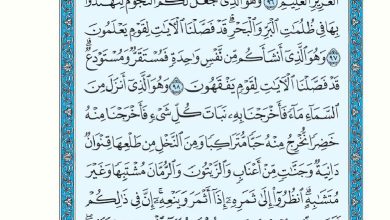 الْعَزِيزِ الْعَلِيمِ ﴿٩٦﴾ وَهُوَ الَّذِي جَعَلَ لَكُمُ النُّجُومَ لِتَهْتَدُوا
بِهَا فِي ظُلُمَاتِ الْبَرِّ وَالْبَحْرِ قَدْ فَصَّلْنَا الْآيَاتِ لِقَوْمٍ يَعْلَمُونَ
﴿٩٧﴾ وَهُوَ الَّذِي أَنشَأَكُم مِّن نَّفْسٍ وَاحِدَةٍ فَمُسْتَقَرٌّ وَمُسْتَوْدَعٌ
قَدْ فَصَّلْنَا الْآيَاتِ لِقَوْمٍ يَفْقَهُونَ ﴿٩٨﴾ وَهُوَ الَّذِي أَنزَلَ مِنَ
السَّمَاءِ مَاءً فَأَخْرَجْنَا بِهِ نَبَاتَ كُلِّ شَيْءٍ فَأَخْرَجْنَا مِنْهُ
خَضِرًا نُّخْرِجُ مِنْهُ حَبًّا مُّتَرَاكِبًا وَمِنَ النَّخْلِ مِن طَلْعِهَا قِنْوَانٌ
دَانِيَةٌ وَجَنَّاتٍ مِّنْ أَعْنَابٍ وَالزَّيْتُونَ وَالرُّمَّانَ مُشْتَبِهًا وَغَيْرَ
مُتَشَابِهٍ انظُرُوا إِلَى ثَمَرِهِ إِذَا أَثْمَرَ وَيَنْعِهِ إِنَّ فِي ذَٰلِكُمْ